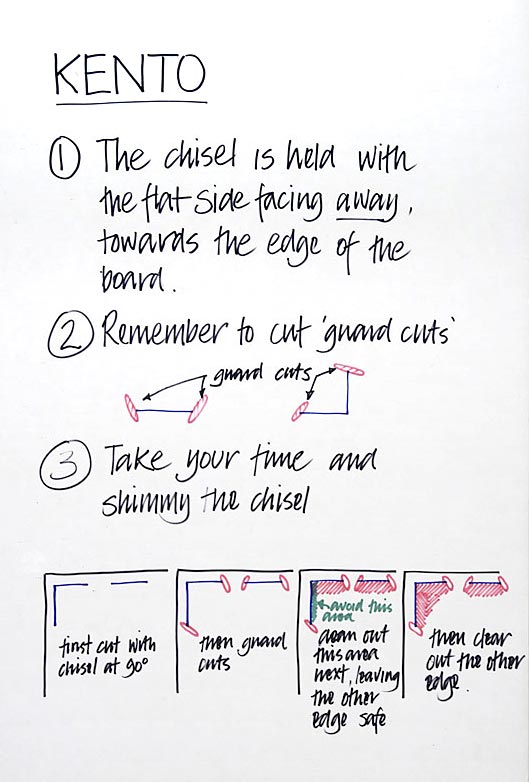 KENTO
① The chisel is held with
the flat side facing away,
towards the edge of the
board.
② Remember to cut 'guard cuts'
guard cuts
③ Take your time and
shimmy the chisel
first cut with
chisel at 90°
then guard
cuts
avoid this
area
clean out
this area
next, leaving
the other
edge safe
then clear
out the other
edge.